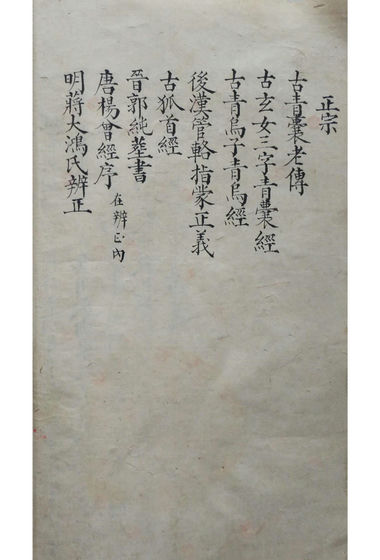 正宗
古青囊老傳
古玄女三字青囊經
古青烏子青烏經
後漢管輅指蒙正義
古狐首經
晉郭純葬書
唐楊曾經序 在辨正內
明蔣大鴻氏辨正